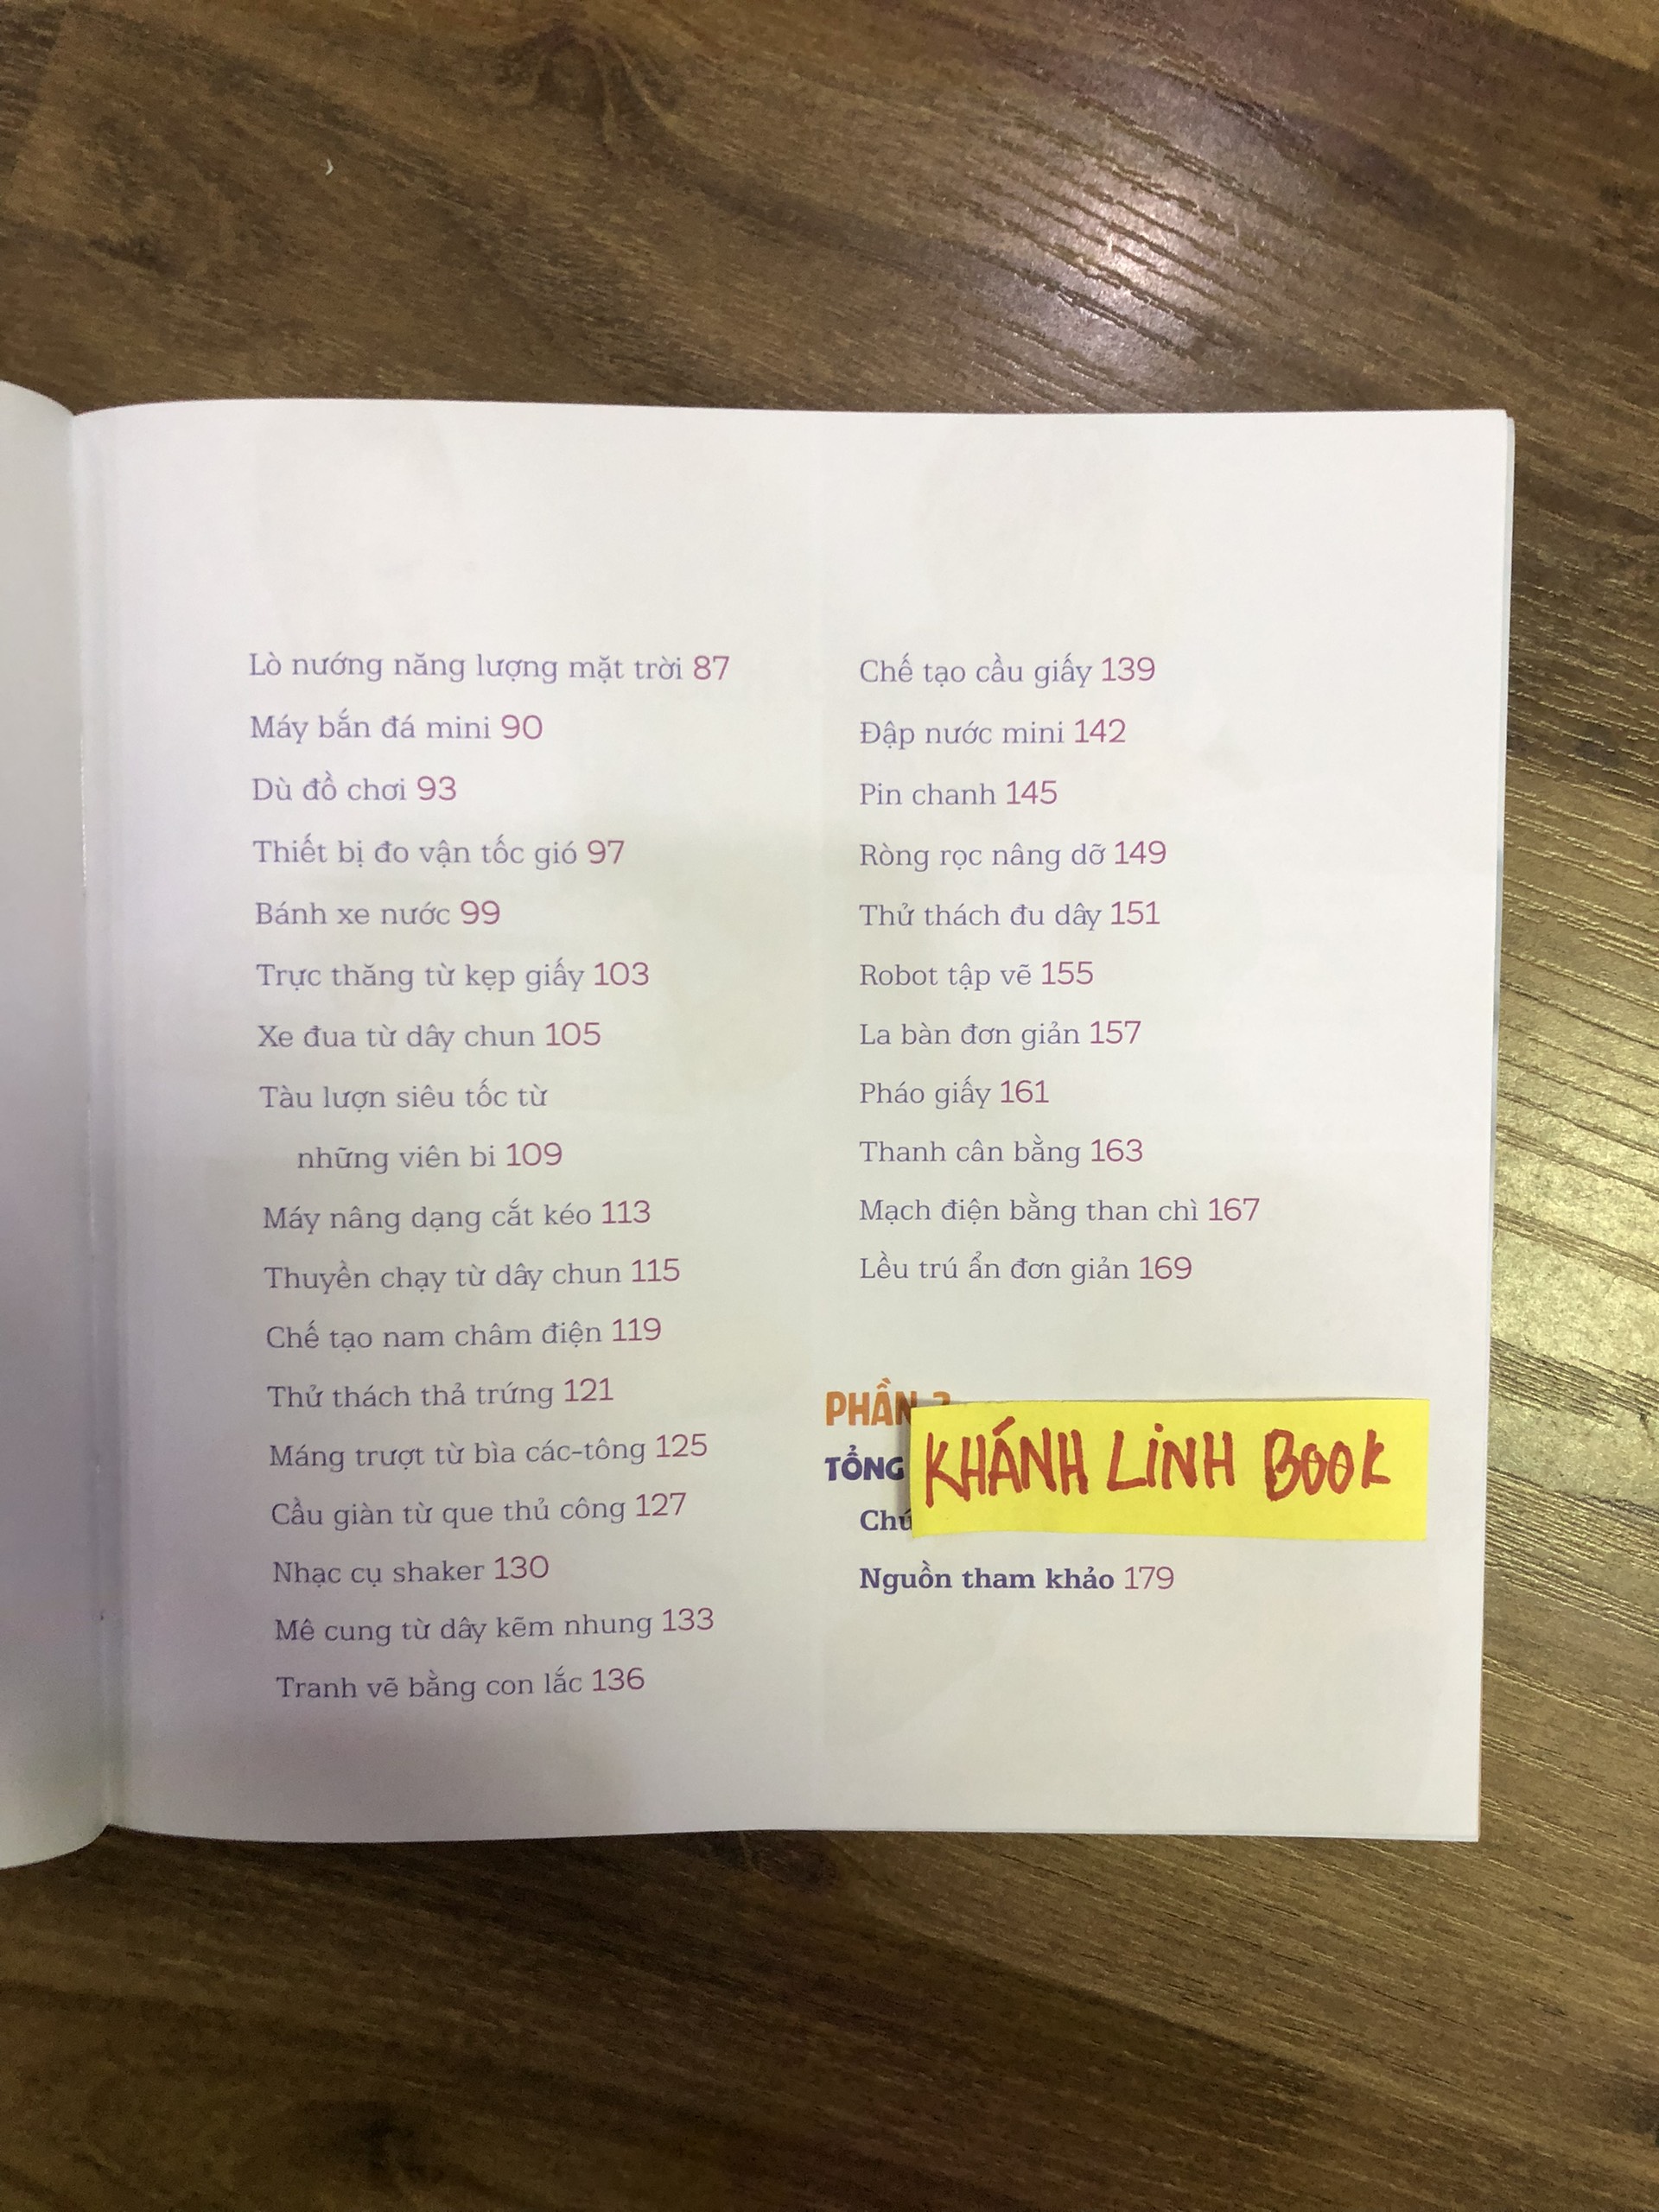 Lò nướng năng lượng mặt trời 87
Máy bắn đá mini 90
Dù đồ chơi 93
Thiết bị đo vận tốc gió 97
Bánh xe nước 99
Trực thăng từ kẹp giấy 103
Xe đua từ dây chun 105
Tàu lượn siêu tốc từ
những viên bi 109
Máy nâng dạng cắt kéo 113
Thuyền chạy từ dây chun 115
Chế tạo nam châm điện 119
Thử thách thả trứng 121
Máng trượt từ bìa các-tông 125
Cầu giàn từ que thủ công 127
Nhạc cụ shaker 130
Mê cung từ dây kẽm nhung 133
Tranh vẽ bằng con lắc 136
Chế tạo cầu giấy 139
Đập nước mini 142
Pin chanh 145
Ròng rọc nâng dỡ 149
Thử thách đu dây 151
Robot tập vẽ 155
La bàn đơn giản 157
Pháo giấy 161
Thanh cân bằng 163
Mạch điện bằng than chì 167
Lều trú ẩn đơn giản 169
PHẦN
TỔNG
KHÁNH LINH BOOK
Nguồn tham khảo 179